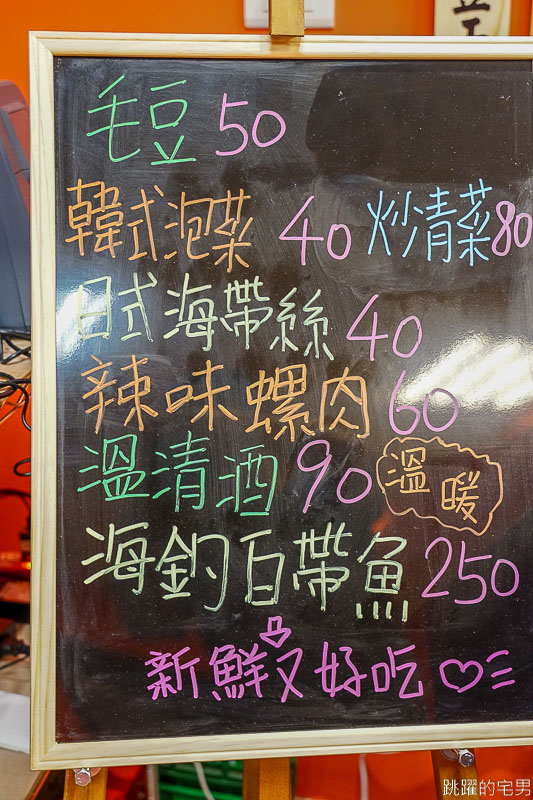 毛豆 50
韓式泡菜 40 炒青菜 80
日式海帶絲 40
辣味螺肉 60
溫清酒 90 溫暖
海釣白帶魚 250
新鮮又好吃
跳躍的宅男